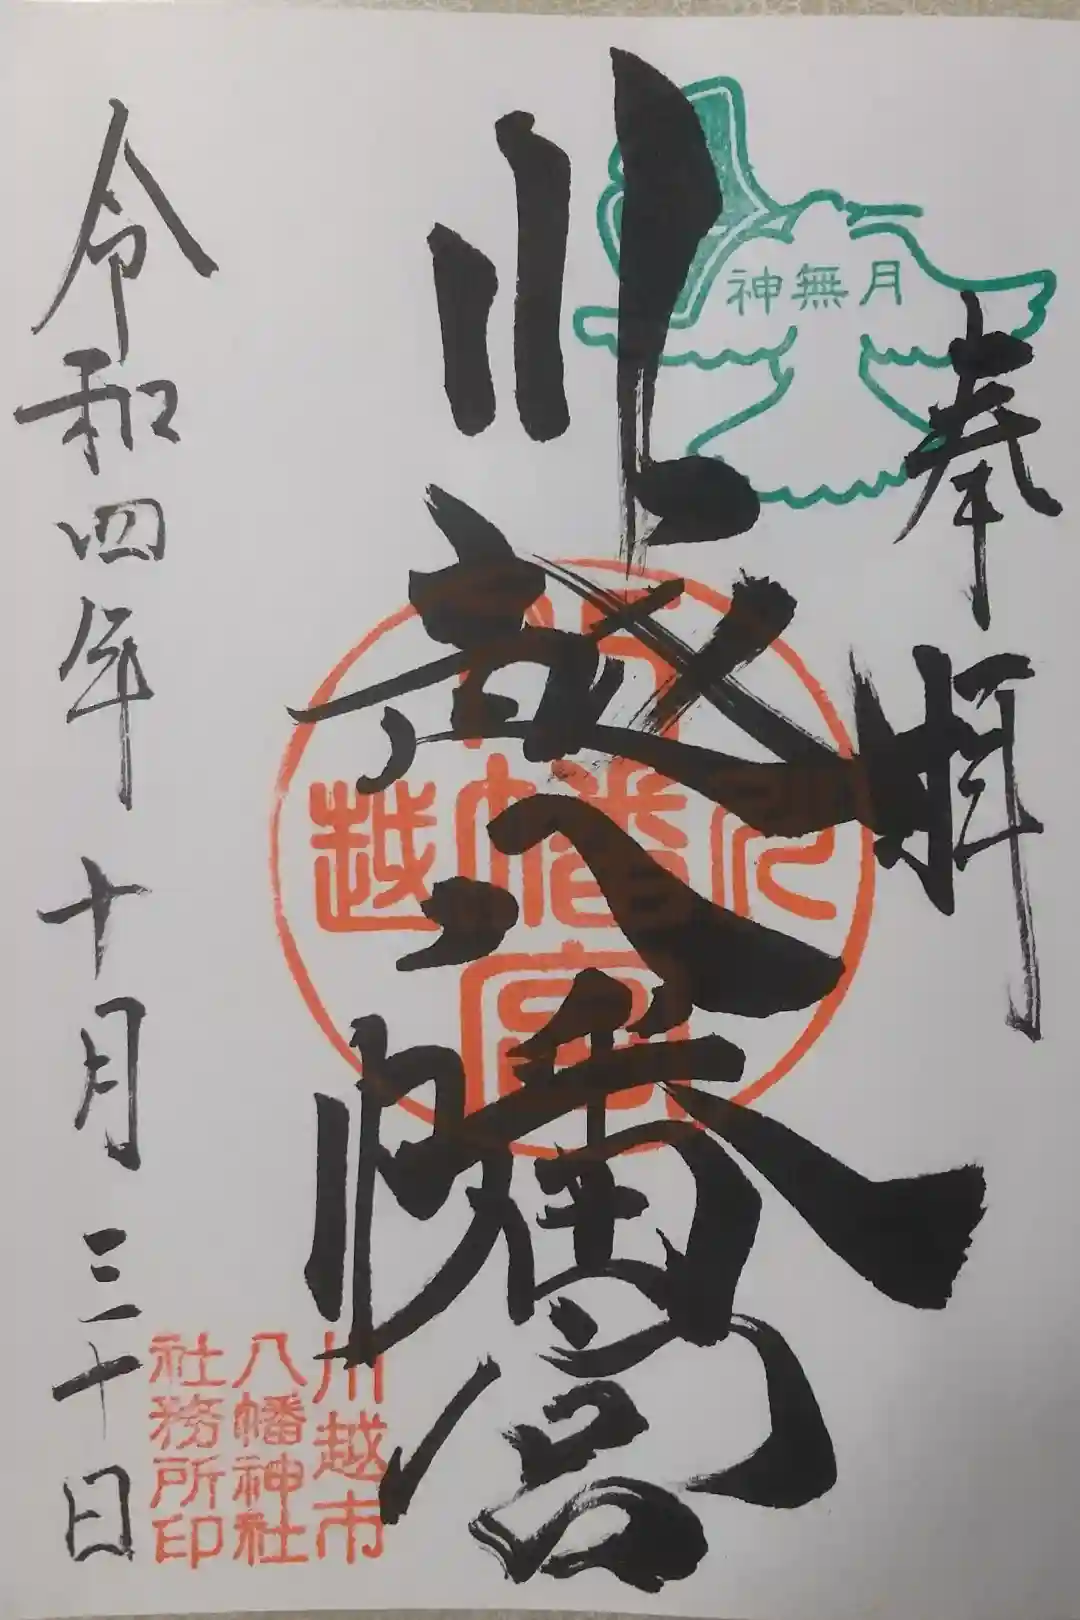 奉拝
神無月
川越八幡宮
川越八幡宮
川越市
八幡神社
社務所印
令和四年十月三十日